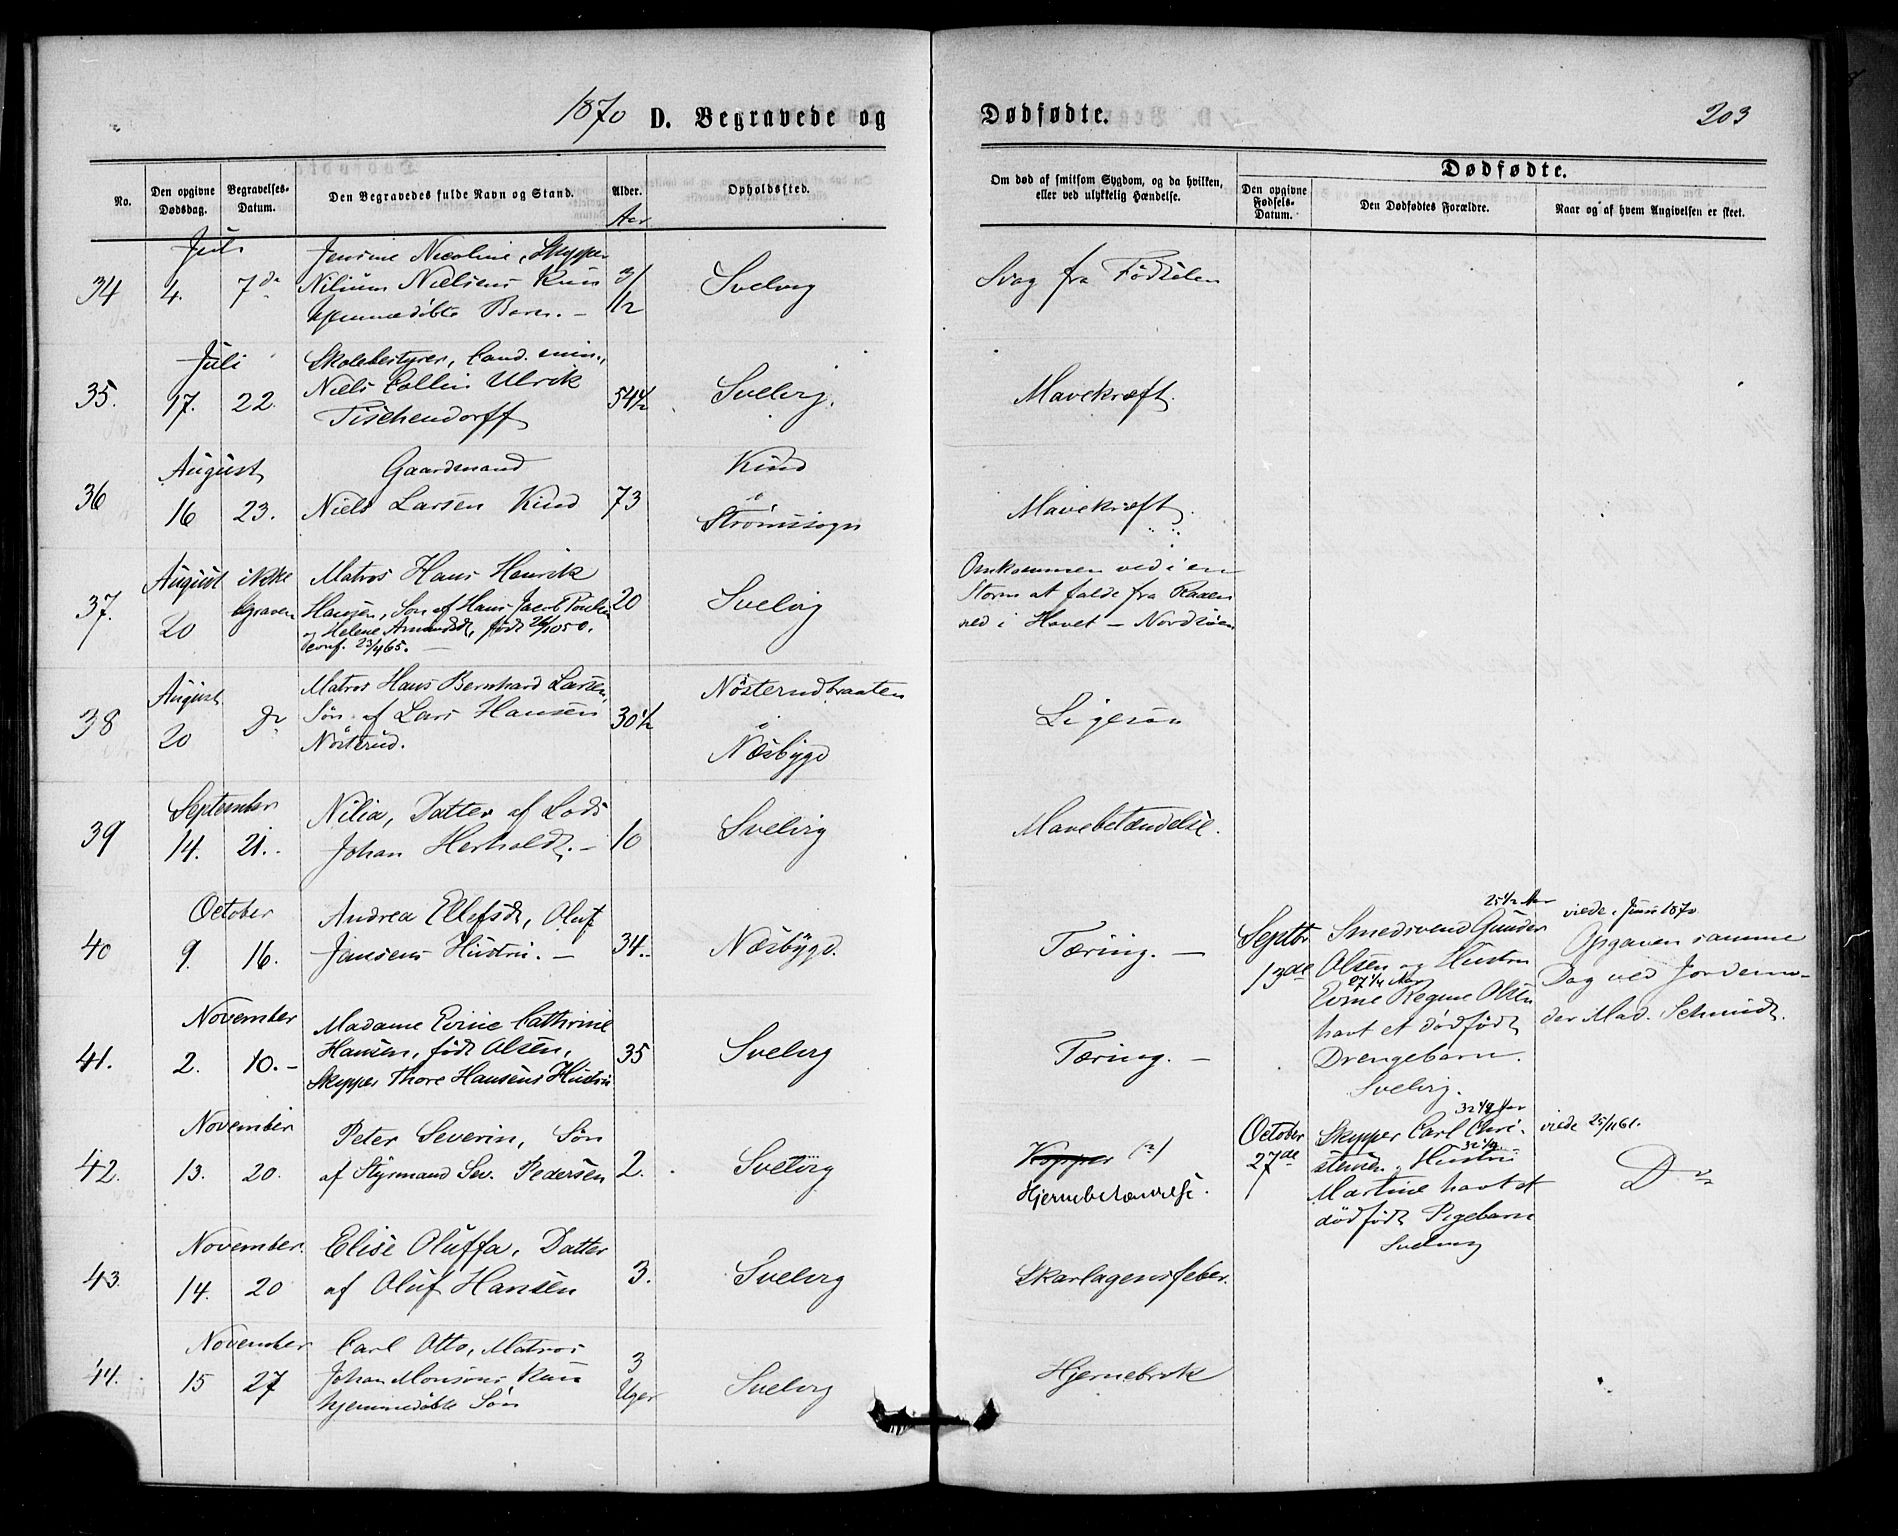 1870 D. Begravede og Dødfødte. 203
No. Den opgivne Dødsdag. Begravelses-Datum. Den Begravedes fulde Navn og Stand. Alder. Opholdssted.
Aar
Om død af smitsom Sygdom, og da hvilken, eller ved ulykkelig Hændelse.
Dødfødte.
Den opgivne Fødsels-Datum. Den Dødfødtes Forældre. Naar og af hvem Angivelsen er skeet.
Juli Jensine Nicoline, Skypper
34 4. 7de Nilium Nielsens kun 3/12 Svelvig Svag fra Fødselen
hjemmedøbte Barn. –
Juli Skolebestyrer, Cand. min.,
35. 17. 22. Niels Collin Ulrik 54½ Svelvig. Mavekræft.
Tischendorff
August Gaardmand Kind
36 16 23. Niels Larsen Kind 73 Strømssogn Mavekræft.
August ikke Matros Hans Henrik Omkommen ved i en
37. 20 begraven Hansen, Søn af Hans Jacob 20 Svelvig Storm at falde fra Raaen
og Helene Amundsdt, født 26/10 50. ned i Havet – Nordsøen
conf. 23/4 65. –
August Matros Hans Bernhard Larsen, Nøsterudbraaten
38 20 Do Søn af Lars Hansen 30½ Ligesaa
Nøsterud. Næsbygd
September Nilia, Datter af Lods
39 14. 21. Johan Herholdt. – 10 Svelvig Mavebetændelse.
October Andrea Ellefsdt, Oluf
40 9. 16. Jansens Hustru. – 34. Næsbygd. Tæring. –
November Madame Evine Cathrine
41. 2. 10. – Hansen, født Olsen, 35 Svelvig Tæring. –
Skypper Thore Hansens Hustru
November Peter Severin, Søn Kopper (?)
42. 13. 20. af Styrmand Sev. Pedersen 2. Svelvig Hjernebetændelse.
November. Elise Oluffa, Datter
43. 14. 20 af Oluf Hansen 3. Svelvig Skarlagensfeber.
November Carl Otto, Matros
44. 15 27 Johan Monsens kun 3 Uger Svelvig Hjernebrok
hjemmedøbte Søn
25½ Aar viede i Juni 1870
Septbr Smedsvend Gunder Opgaven samme
13de Olsen og Hustru Dag ved Jordemo-
27¼ Aar
Evine Regine Olsen der Mad. Schmidt.
havt et dødfødt
Drengebarn.
Svelvig.
32½ Aar
October Skypper Carl Chri- viede 25/11 61.
32½
27de stensen, Hustru Do
Martine havt et
dødfødt Pigebarn
Svelvig